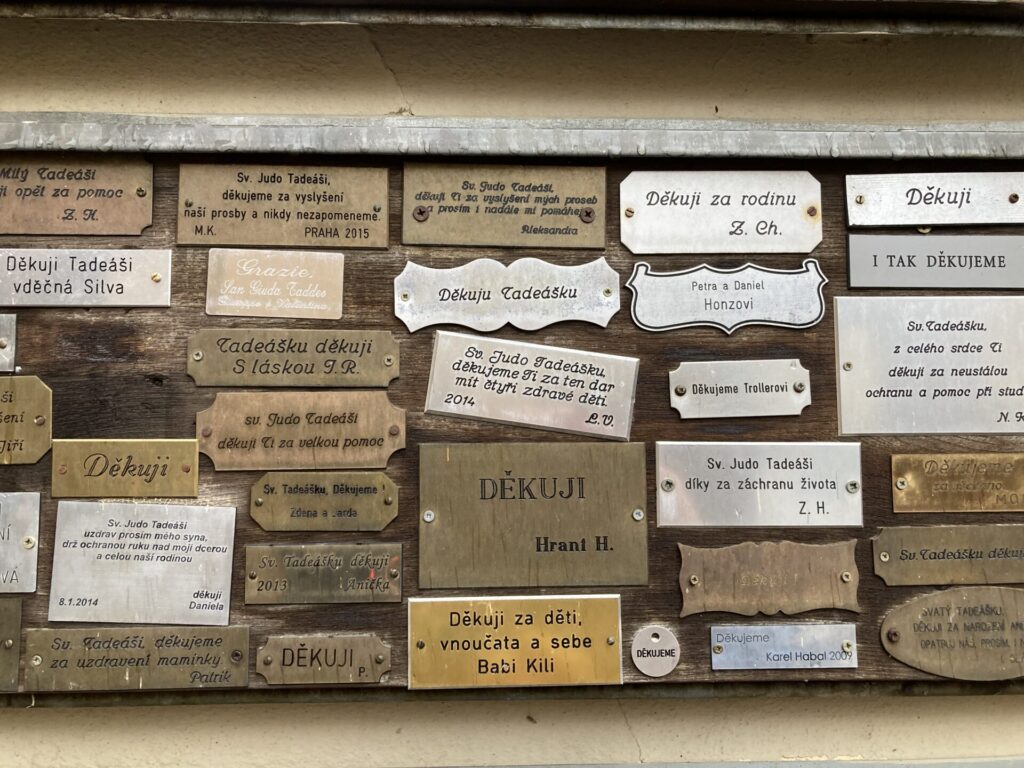 Milý Tadeáši
ji opět za pomoc
Z. H.
Sv. Judo Tadeáši,
děkujeme za vyslyšení
naší prosby a nikdy nezapomeneme.
M.K. PRAHA 2015
Sv. Judo Tadeáši,
děkuji Ti za vyslyšení mých proseb
a prosím i nadále mi pomáhej
Aleksandra
Děkuji za rodinu
Z. Ch.
Děkuji
I TAK DĚKUJEME
Děkuji Tadeáši
vděčná Silva
Grazie,
San Giuda Taddeo
Děkuju Tadeášku
Petra a Daniel
Honzovi
Sv. Tadeášku,
z celého srdce Ti
děkuji za neustálou
ochranu a pomoc při stud
N. K
Tadeášku děkuji
S láskou J.R.
Sv. Judo Tadeášku,
děkujeme Ti za ten dar
mít čtyři zdravé děti.
2014 L.V.
Děkujeme Trollerovi
ší
šení
Jiří
sv. Judo Tadeáši
děkuji Ti za velkou pomoc
Děkuji
Sv. Tadeášku, Děkujeme !
Zdena a Jarda
DĚKUJI
Hrant H.
Sv. Judo Tadeáši
díky za záchranu života
Z. H.
Děkujeme
M.O.
NÍ
VÁ
Sv. Judo Tadeáši
uzdrav prosím mého syna,
drž ochranou ruku nad mojí dcerou
a celou naší rodinou
děkuji
8.1.2014 Daniela
Sv. Tadeášku děkuji
2013 Anička
Děkuji
Sv. Tadeášku děkuji
Sv. Tadeáši, děkujeme
za uzdravení maminky.
Patrik
DĚKUJI
P.
Děkuji za děti,
vnoučata a sebe
Babi Kili
DĚKUJEME
Děkujeme
Karel Habal 2009
SVATÝ TADEÁŠKU,
DĚKUJI ZA NAROZENÍ
OPATRUJ NÁS, PROSÍM.